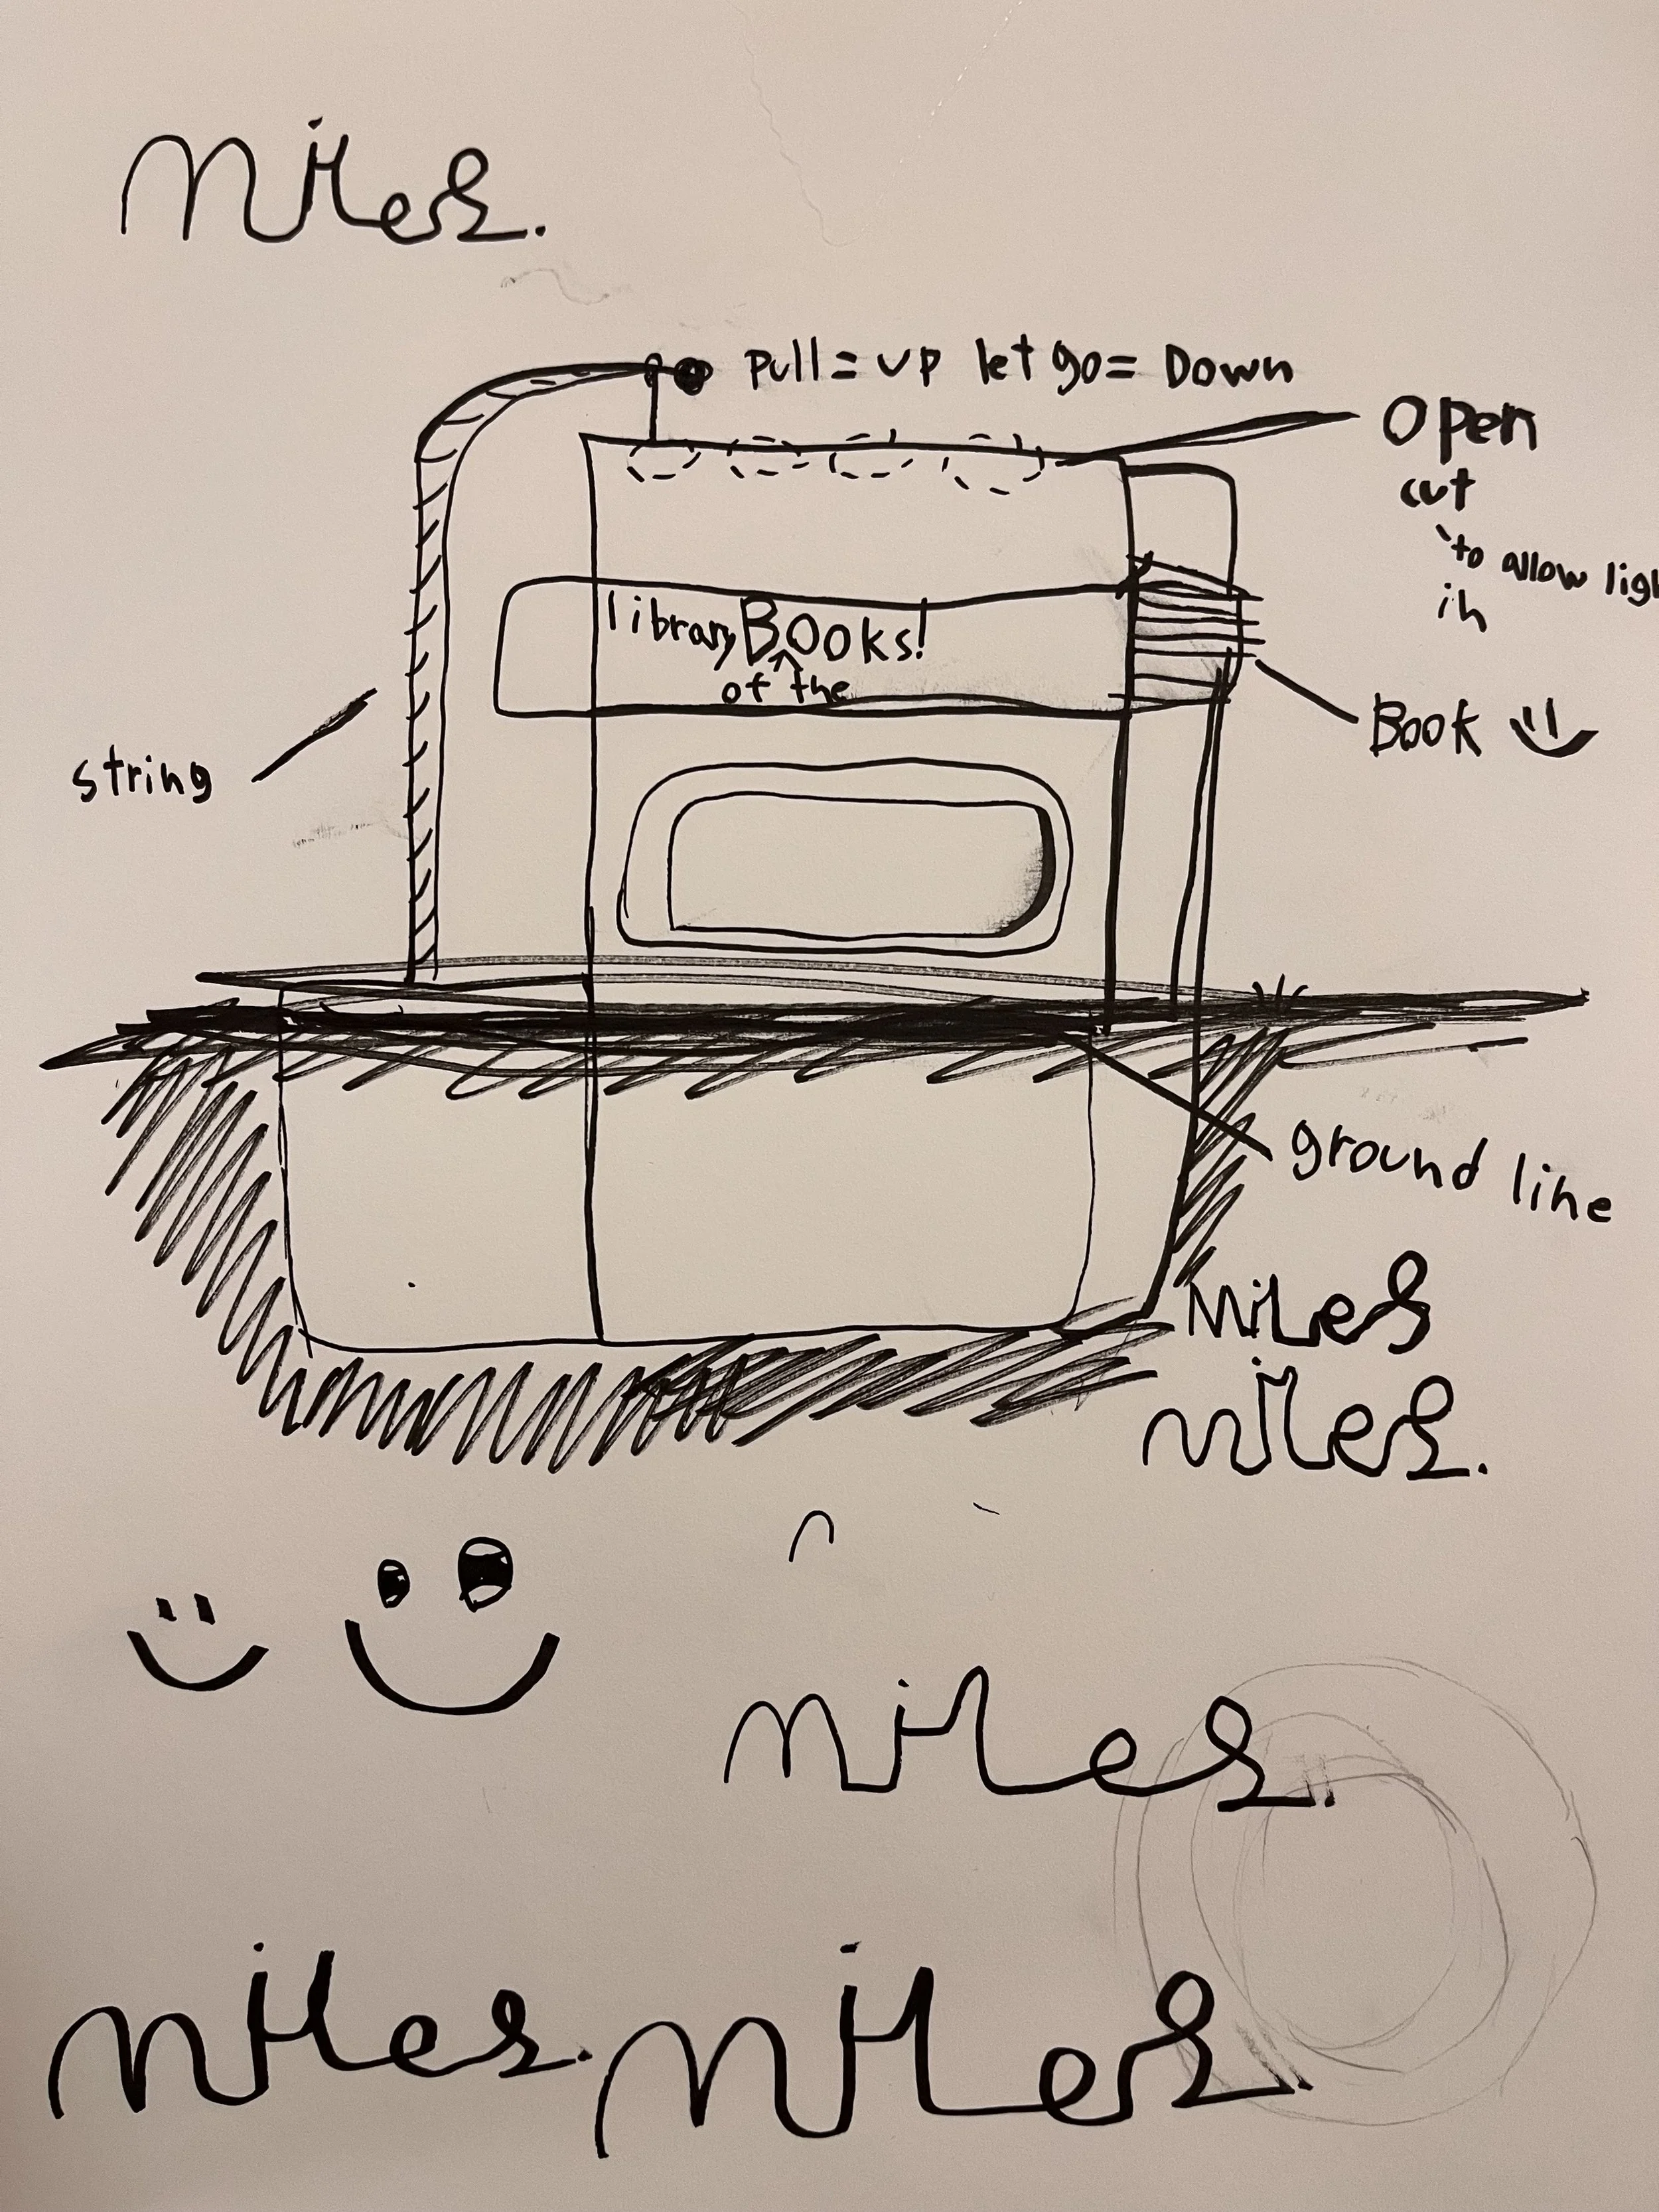 Miles.
Pull = up let go = Down
Open
cut
to allow
in
library Books!
of the
Book
string
ground line
Miles
Miles.
Miles.
Miles. Miles.